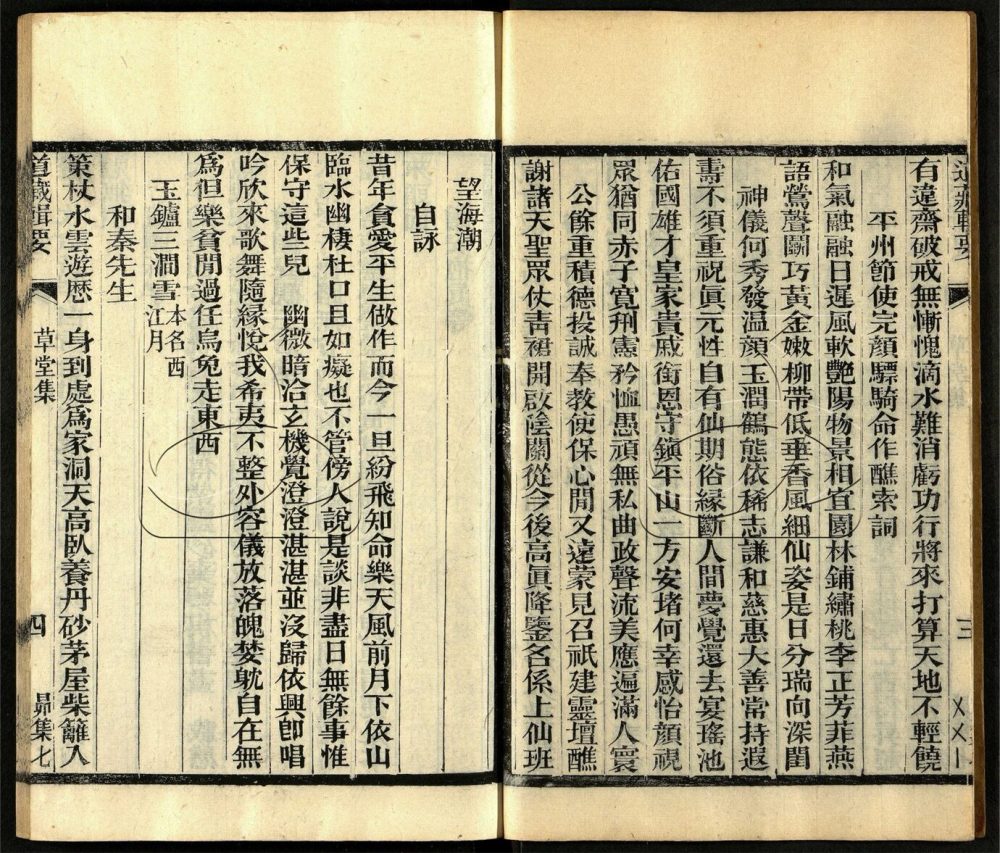 道藏輯要
三
有違齋破戒無慚愧滴水難消虧功行將來打算天地不輕饒
平州節使完顏驃騎命作醮索詞
和氣融融日遲風軟艷陽物景相宜園林鋪繡桃李正芳菲燕
語鶯聲鬬巧黃金嫩柳帶低垂香風細仙姿是日分瑞向深閨
神儀何秀發温顏玉潤鶴態依稀志謙和慈惠大善常持遐
壽不須重祝眞元性自有仙期俗緣斷人間夢覺還去宴瑤池
佑國雄才皇家貴戚銜恩守鎮平山一方安堵何幸感怡顏視
眾猶同赤子寛刑憲矜恤愚頑無私曲政聲流美應遍滿人寰
公餘重積德投誠奉教使保心閒又遠蒙見召祇建靈壇醮
謝諸天聖眾仗靑裙開啟陰關從今後高眞降鑒名係上仙班
望海潮
自詠
昔年貪愛平生做作而今一旦紛飛知命樂天風前月下依山
臨水幽棲杜口且如癡也不管傍人說是談非盡日無餘事惟
保守這些兒　幽微暗洽玄機覺澄澄湛湛並沒歸依興卽唱
吟欣來歌舞隨緣悅我希夷不整外容儀放落魄婪躭自在無
爲但樂貧閒過任烏兔走東西
玉鑪三澗雪本名西江月
和秦先生
策杖水雲遊歴一身到處爲家洞天高臥養丹砂茅屋柴籬入
道藏輯要
草堂集
四
昴集七